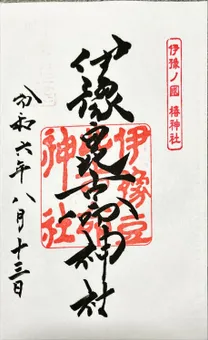 伊豫ノ國 椿神社
伊豫豆比古命神社
伊豫豆
神社
令和六年八月十三日